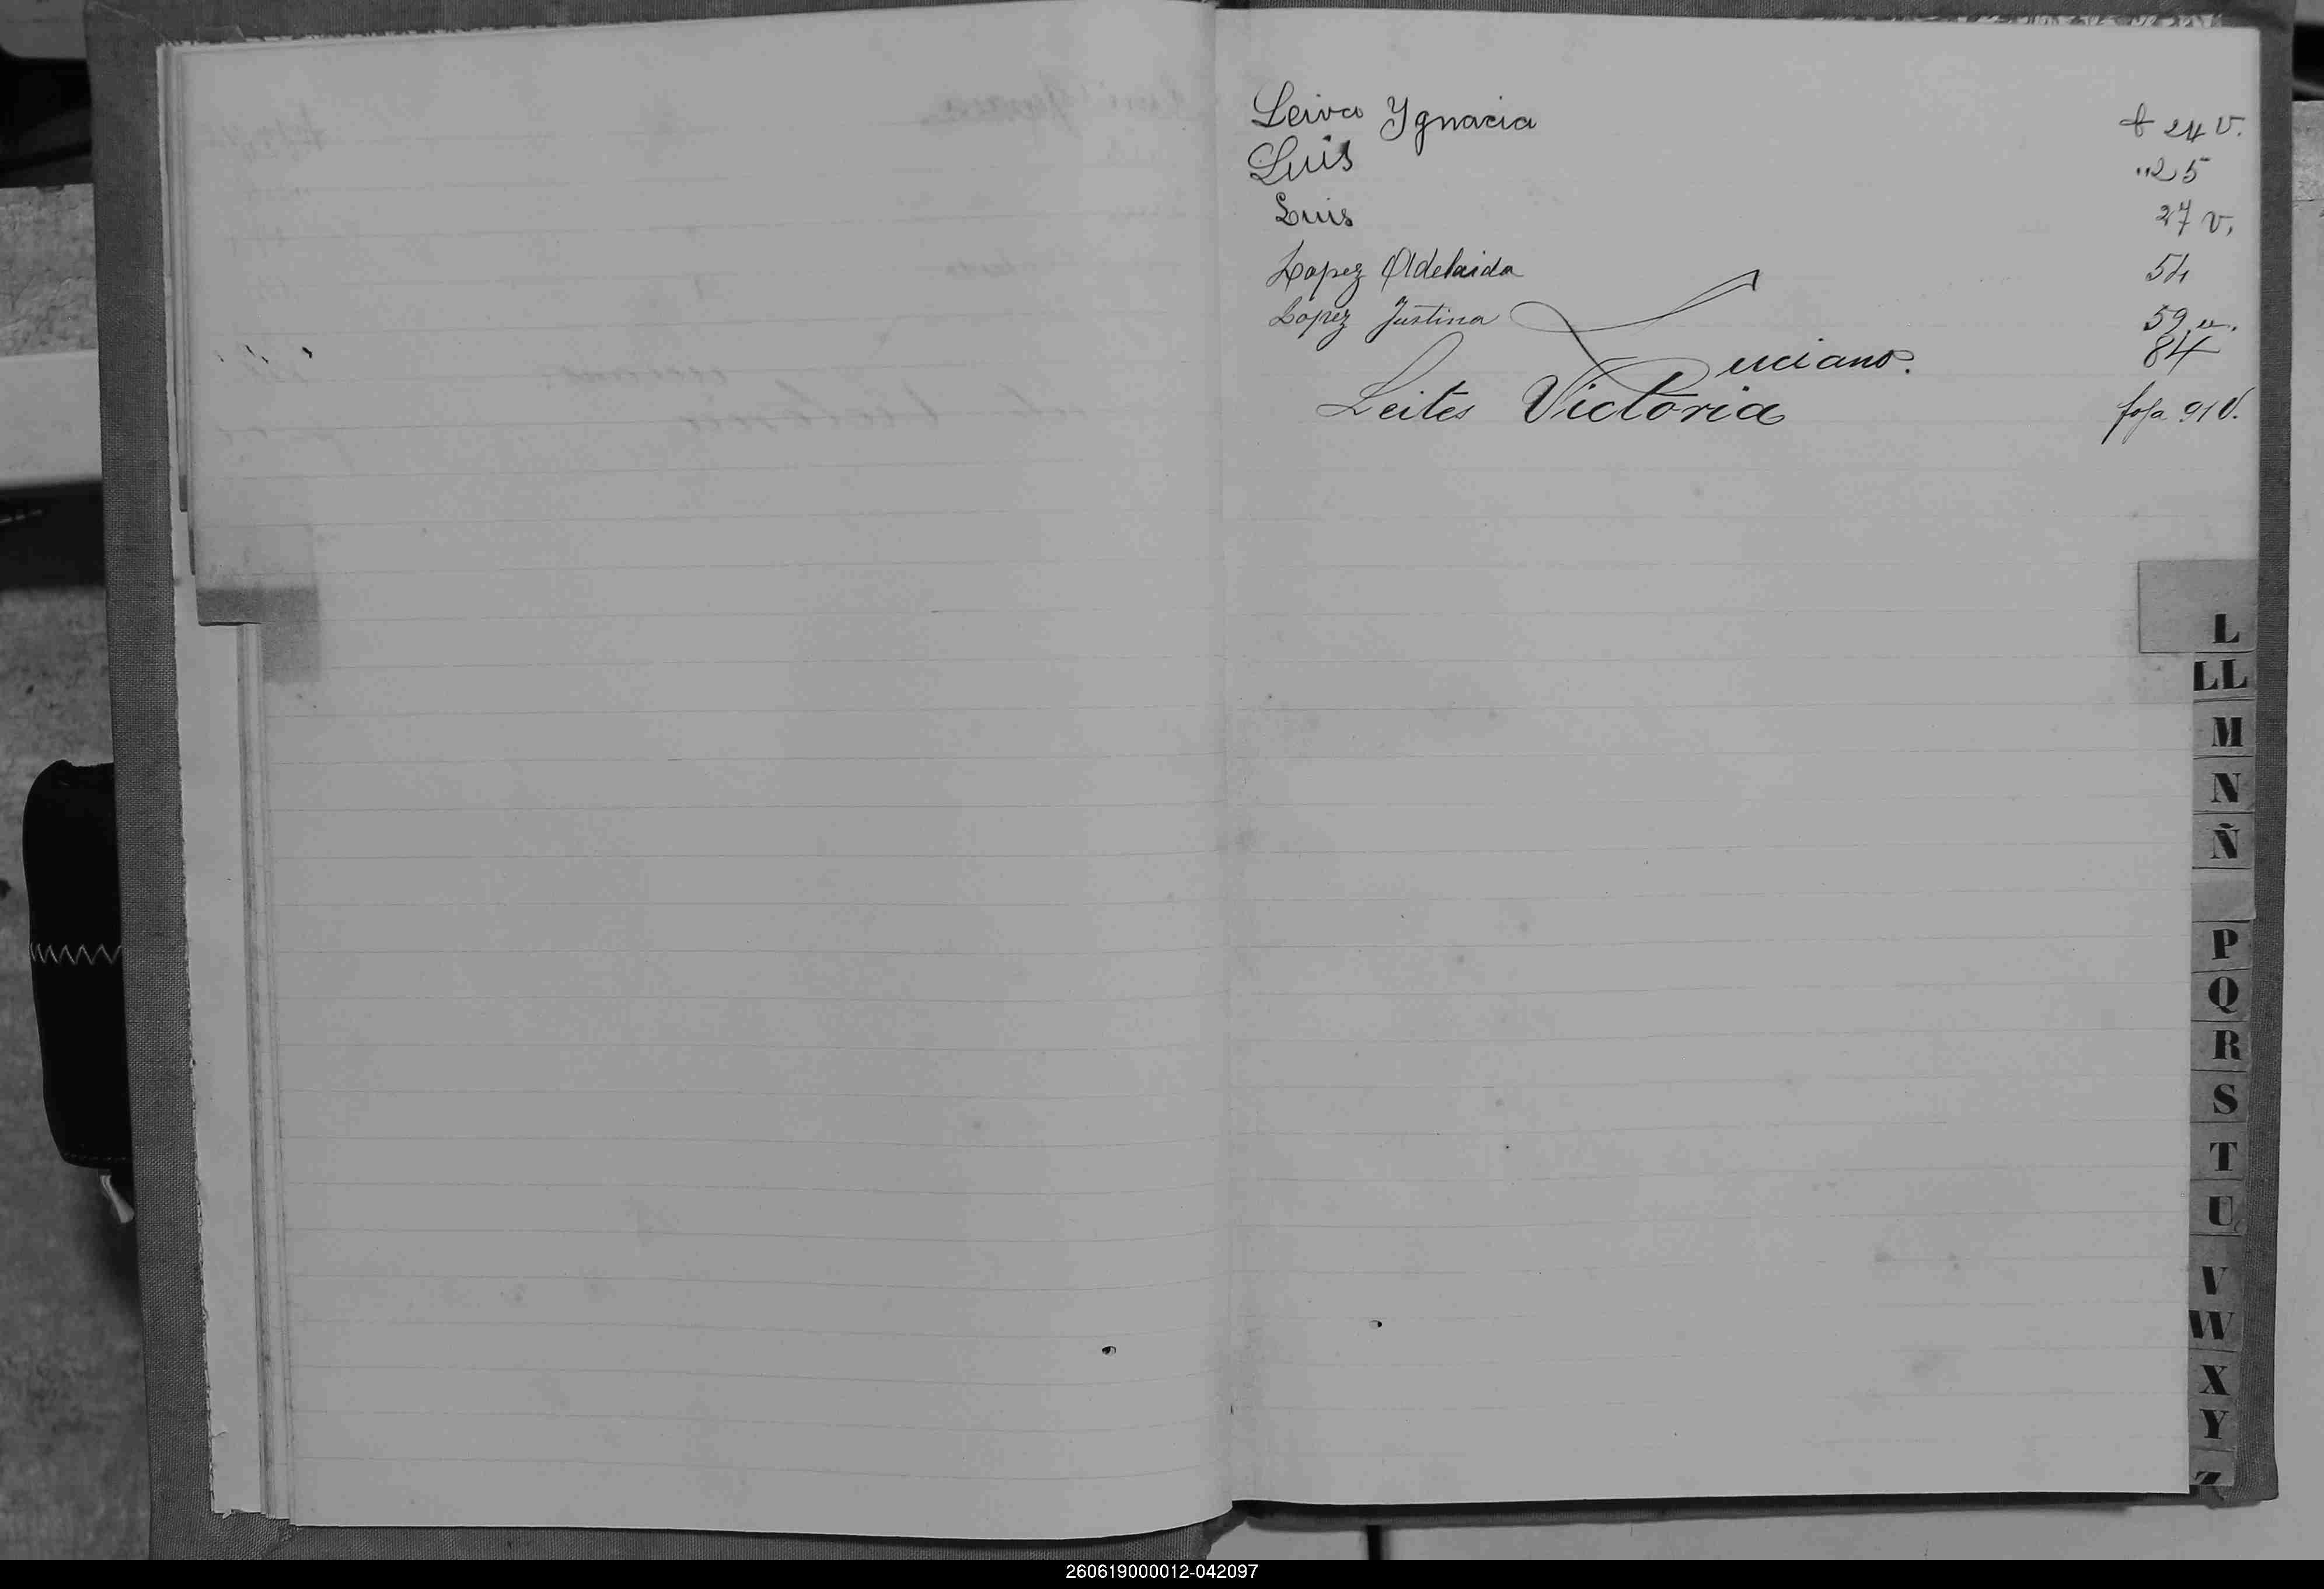 Leiva Ygnacia f 24 v.
Luis "25
Luis 27 v.
Lopez Adelaida 54
Lopez Justina 59 v.
Luciano. 84
Leites Victoria foja 91 v.
L
LL
M
N
Ñ
P
Q
R
S
T
U
V
W
X
Y
Z
260619000012-042097